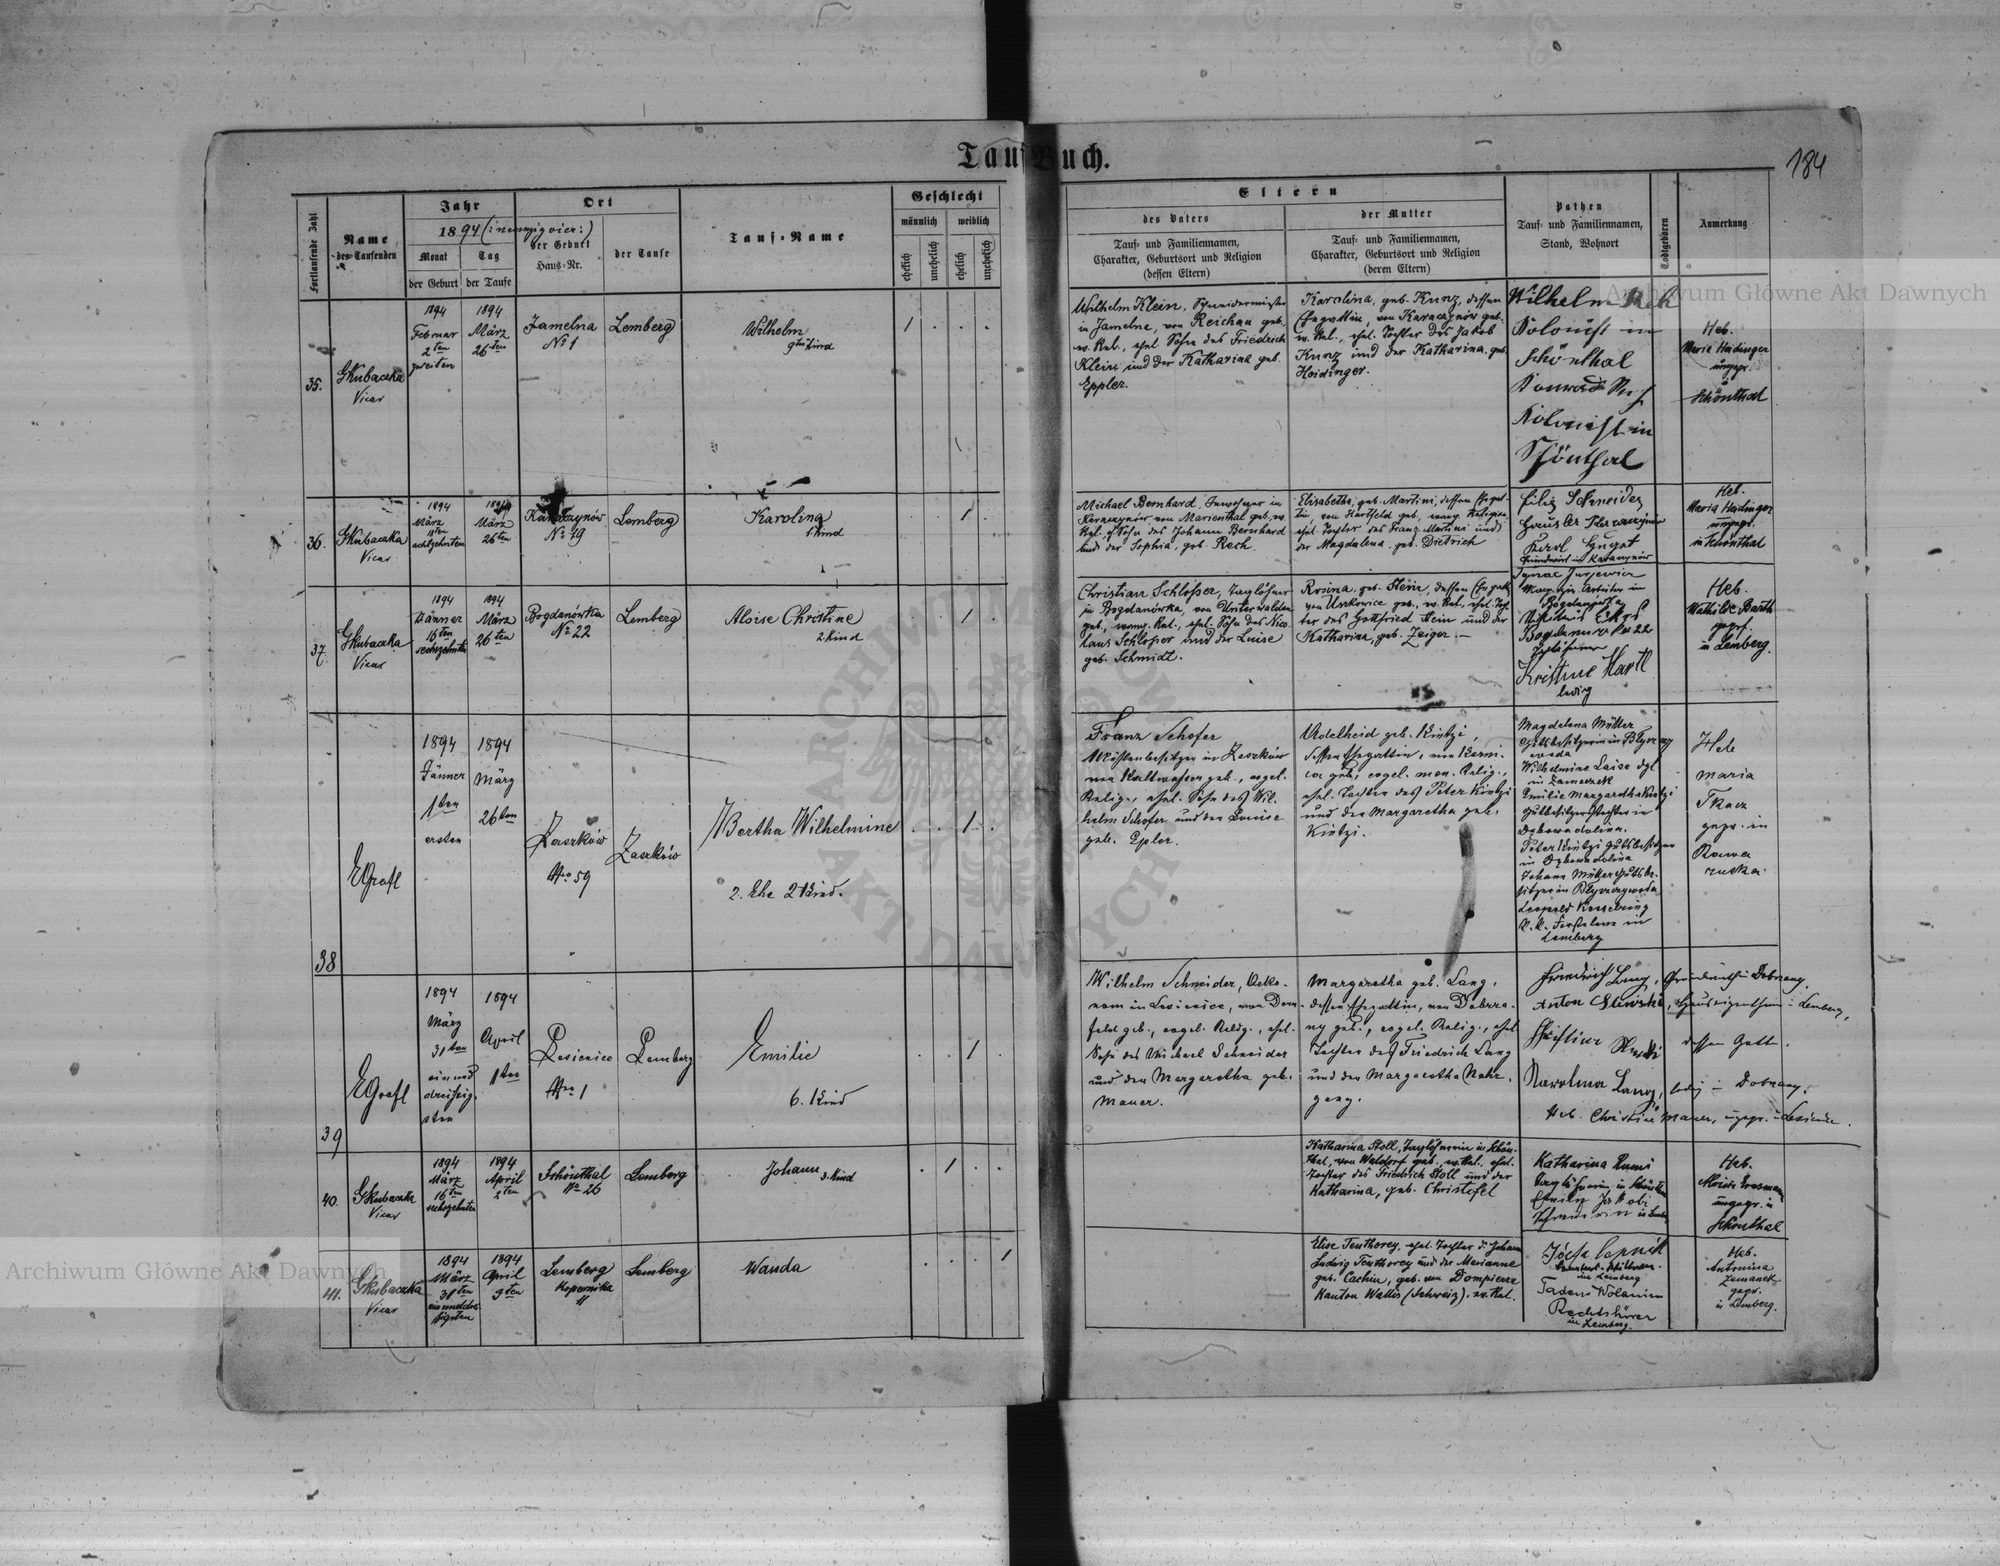 Tauf Buch.
184
Fortlaufende Zahl
Name
des Taufenden
Jahr
1894 (:neunzigvier:)
Monat
Tag
der Geburt
der Taufe
Ort
der Geburt
Haus-Nr.
der Taufe
Tauf-Name
Geschlecht
männlich
weiblich
ehelich
unehelich
ehelich
unehelich
Eltern
des Vaters
Tauf- und Familiennamen,
Charakter, Geburtsort und Religion
(dessen Eltern)
der Mutter
Tauf- und Familiennamen,
Charakter, Geburtsort und Religion
(deren Eltern)
Pathen
Tauf- und Familiennamen,
Stand, Wohnort
Todtgeboren
Anmerkung
35.
GKubaczka
Vicar
1894
Februar
2ten
zweiten
1894
März
26ten
Jamelna
No 1
Lemberg
Wilhelm
9tes Kind
1
Wilhelm Klein, Schneidermeister
in Jamelna, von Reichau geb.,
ev. Rel., ehel. Sohn des Friedrich
Klein und der Katharina geb.
Eppler.
Karolina, geb. Kunz, dessen
Ehegattin, von Karaczynów geb.
ev. Rel., ehel. Tochter des Jakob
Kunz und der Katharina geb.
Heidinger.
Wilhelm
Kolonist in
Schönthal
Konrad
Kolonist in
Schönthal
Heb.
Maria Heidinger
ungepr.
Schönthal
36.
GKubaczka
Vicar
1894
März
18ten
achtzehnten
1894
März
26ten
Karaczynów
No 49
Lemberg
Karolina
1. Kind
1
Michael Bernhard, Inwohner in
Karaczynów, von Marienthal geb., ev.
Rel., e. Sohn des Johann Bernhard
und der Sophia, geb. Rech.
Elisabetha, geb. Martini, dessen Ehegat-
tin, von Hartfeld geb., evang. Religion,
ehel. Tochter des Franz Martini und
der Magdalena, geb. Dietrich
Schneider
Karl
Grundwirt in Karaczynów
Heb.
Maria Heidinger
ungepr.
in Schönthal
37.
GKubaczka
Vicar
1894
Jänner
16ten
sechzehnten
1894
März
26ten
Bogdanówka
No 22
Lemberg
Aloise Christine
2. Kind
1
Christian Schlosser, Taglöhner
in Bogdanówka, von Unterwalden
geb., evang. Rel., ehel. Sohn des Nico-
laus Schlosser und der Luise
geb. Schmidt.
Rosina, geb. Stein, dessen Ehegattin
von Uszkowice geb., ev. Rel., ehel. Toch-
ter des Gottfried Stein und der
Katharina, geb. Zeiger.
Ignac Jurjewicz
Bogdanówka
Bogdanówka 22
Kristine Hartl
ledig
Heb.
Mathilde Barth
gepr.
in Lemberg.
38
EGrafl
1894
Jänner
1ten
ersten
1894
März
26ten
Zaszków
Nro 59
Zaszków
Bertha Wilhelmine
2. Ehe 2 Kind.
1
Franz Schofer
Mühlenbesitzer in Zaszków
von Kaltwasser geb., evgel.
Relig., ehel. Sohn des Wil-
helm Schofer und der Louise
geb. Epler.
Adelheid geb. Kintzi,
dessen Ehegattin, von Berni-
ca geb., evgel. men. Relig.,
ehel. Tochter des Peter Kintzi
und der Margaretha geb.
Kintzi.
Magdalena Müller
Gutsbesitzerin in
Wilhelmine Luise
in Zameczek
Emilie Margaretha Kintzi
Gutsbesitzerstochter in
Dąbowadolina.
Peter Kintzi Gutsbesitzer
in Dąbowadolina
Johann Müller Gutsbe-
sitzer in
Leopold
k. k. in
Lemberg
Heb
Maria
Tkacz
gepr. in
Rawa
ruska.
39
EGrafl
1894
März
31ten
einund
dreißig
sten
1894
April
1ten
Lesienice
Nro 1
Lemberg
Emilie
6. Kind
1
Wilhelm Schneider, Oeko-
nom in Lesienice, von Dorn-
feld geb., evgel. Relig., ehel.
Sohn des Michael Schneider
und der Margaretha geb.
Mauer.
Margaretha geb. Lang,
dessen Ehegattin, von Dobrza-
ny geb., evgel. Relig., ehel
Tochter des Friedrich Lang
und der Margaretha Nahr-
gang.
Friedrich Lang, Grundwirth in Dobrzany
Anton, Hauseigenthümer in Lemberg,
Christine, dessen Gattin.
Karolina Lang, ledig in Dobrzany.
Heb. Christine Mauer, ungepr. in Lesienice.
40.
GKubaczka
Vicar
1894
März
16ten
sechszehnten
1894
April
2ten
Schönthal
No 26
Lemberg
Johann
3. Kind
1
Katharina Stoll, Taglöhnerin in Schön-
thal, von Waldorf geb., ev. Rel., ehel.
Tochter des Friedrich Stoll und der
Katharina, geb. Christofel
Katharina
Taglöhnerin in
Jakobi
Heb.
ungepr. in
Schönthal
41.
GKubaczka
Vicar
1894
März
31ten
einunddrei-
ßigsten
1894
April
9ten
Lemberg
Kopernika
11
Lemberg
Wanda
1
Elise Tenthorey, ehel. Tochter d. Johann
Ludwig Tenthorey und der Marianne
geb. Cachin, geb. von Dompierre
Kanton Wallis (Schweiz). ev. Rel.
Józefa
in Lemberg
Tadeus Wolanin
Rechtshörer
in Lemberg.
Heb.
Antonina
Zemanek
gepr.
in Lemberg.
Archiwum Główne Akt Dawnych
Archiwum Główne Akt Dawnych
ARCHIWUM GŁÓWNE AKT DAWNYCH